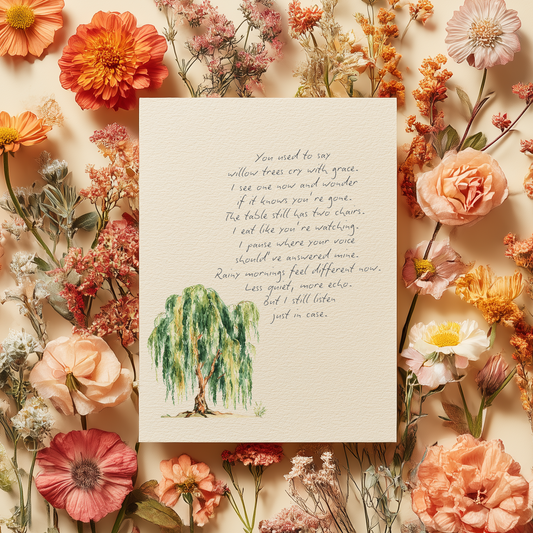 You used to say
willow trees cry with grace.
I see one now and wonder
if it knows you're gone.
The table still has two chairs.
I eat like you're watching.
I pause where your voice
should've answered mine.
Rainy mornings feel different now.
Less quiet, more echo.
But I still listen
just in case.